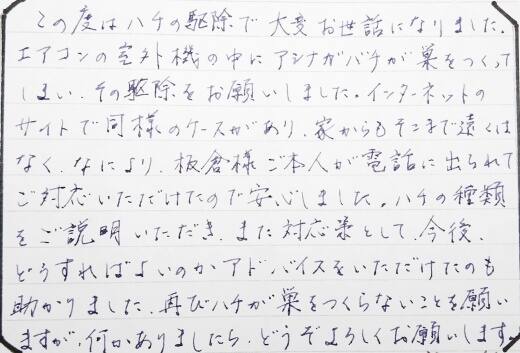 この度はハチの駆除で大変お世話になりました。
エアコンの室外機の中にアシナガバチが巣をつくって
しまい、その駆除をお願いしました。インターネットの
サイトで同様のケースがあり、家からもそこまで遠くは
なく、なにより、板倉様ご本人が電話に出られて
ご対応いただけたので安心しました。ハチの種類
をご説明いただき、また対応策として、今後、
どうすればよいのかアドバイスをいただけたのも
助かりました。再びハチが巣をつくらないことを願い
ますが、何かありましたら、どうぞよろしくお願いします。